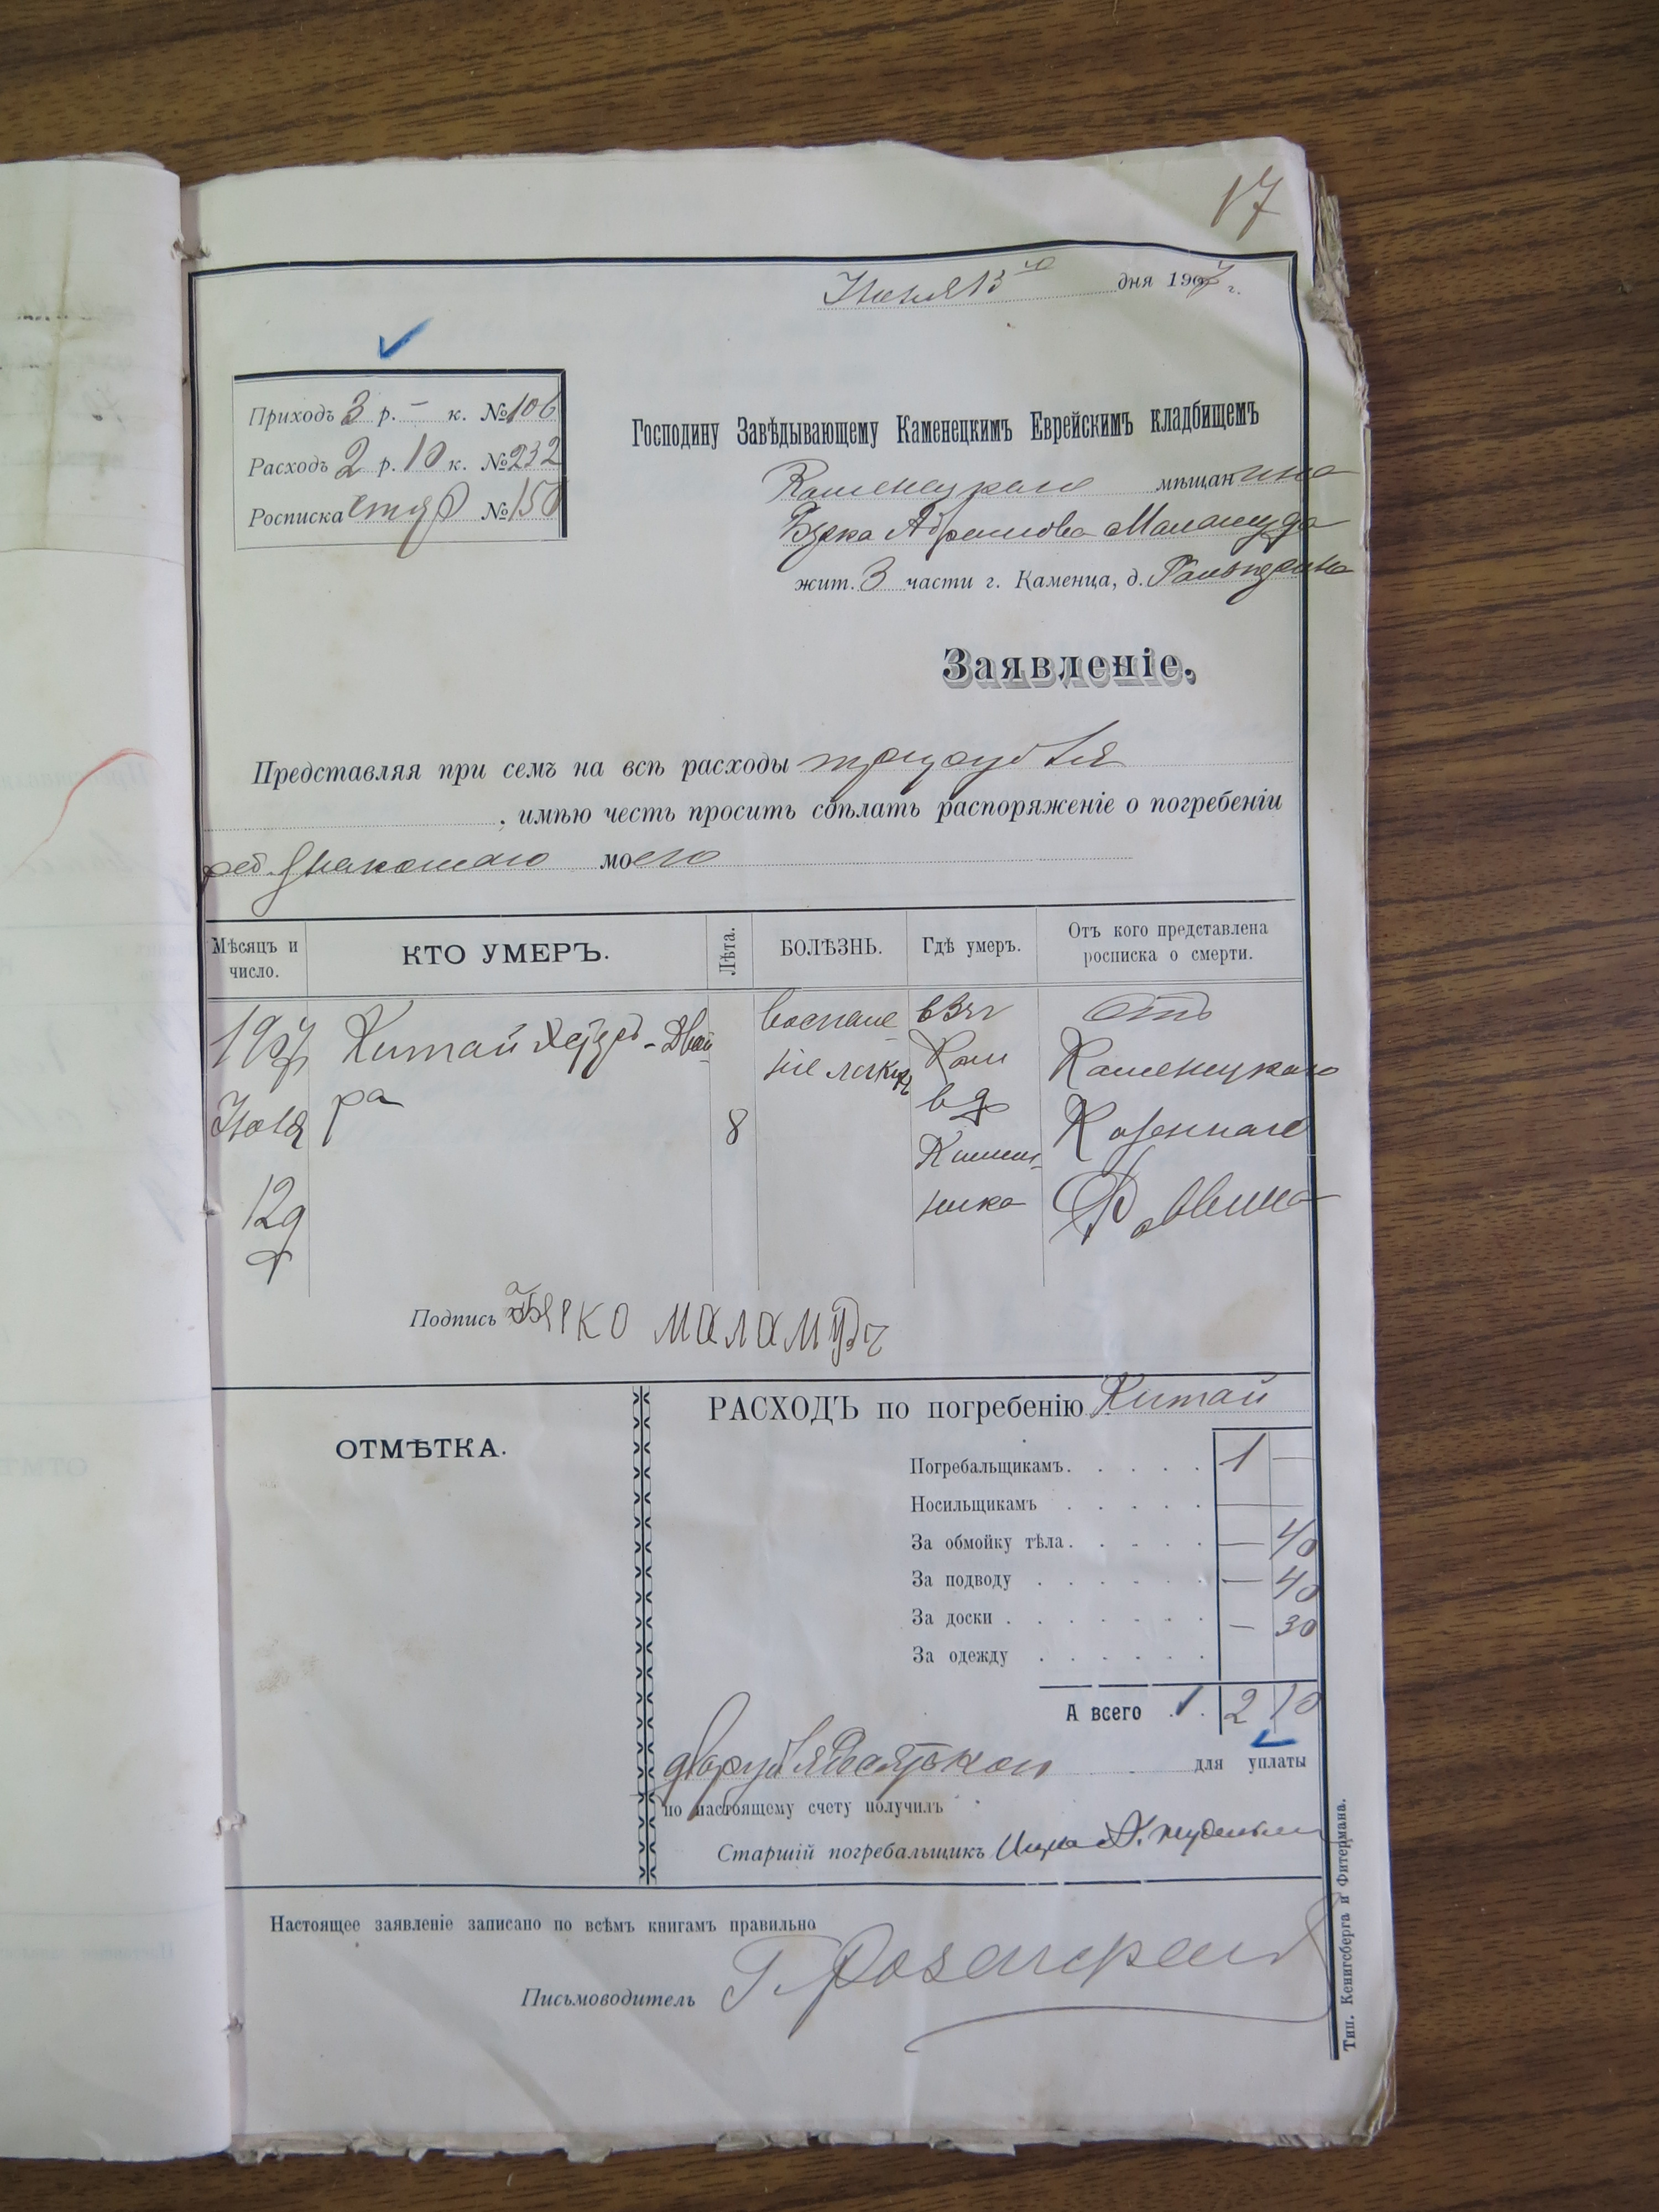 17
13го дня 1907 г.
Приходъ 3 р. – к. № 106
Расходъ 2 р. 10 к. № 232
Росписка № 150
Господину Завѣдывающему Каменецкимъ Еврейскимъ кладбищемъ
Каменецкаго мѣщанина
Берка Абрамова Маламуда
жит. 3 части г. Каменца, д.
Заявленіе.
Представляя при семъ на всѣ расходы три рубля
, имѣю честь просить сдѣлать распоряженіе о погребеніи
знакомаго моего
Мѣсяцъ и число.
КТО УМЕРЪ.
Лѣта.
БОЛѢЗНЬ.
Гдѣ умеръ.
Отъ кого представлена росписка о смерти.
1907
12
Китай
8
воспале
ніе легкихъ
в 3 ч
Кам
в д
отъ
Каменецкаго
Казеннаго
Раввина
Подпись БЕРКО МАЛАМУДЪ
ОТМѢТКА.
РАСХОДЪ по погребенію Китай
Погребальщикамъ. 1 —
Носильщикамъ — —
За обмойку тѣла. — 40
За подводу — 40
За доски — 30
За одежду
А всего 2 10
два рубля десять коп для уплаты
по настоящему счету получилъ
Старшій погребальщикъ
Настоящее заявленіе записано по всѣмъ книгамъ правильно
Письмоводитель
Тип. Кенигсберга и Фитермана.